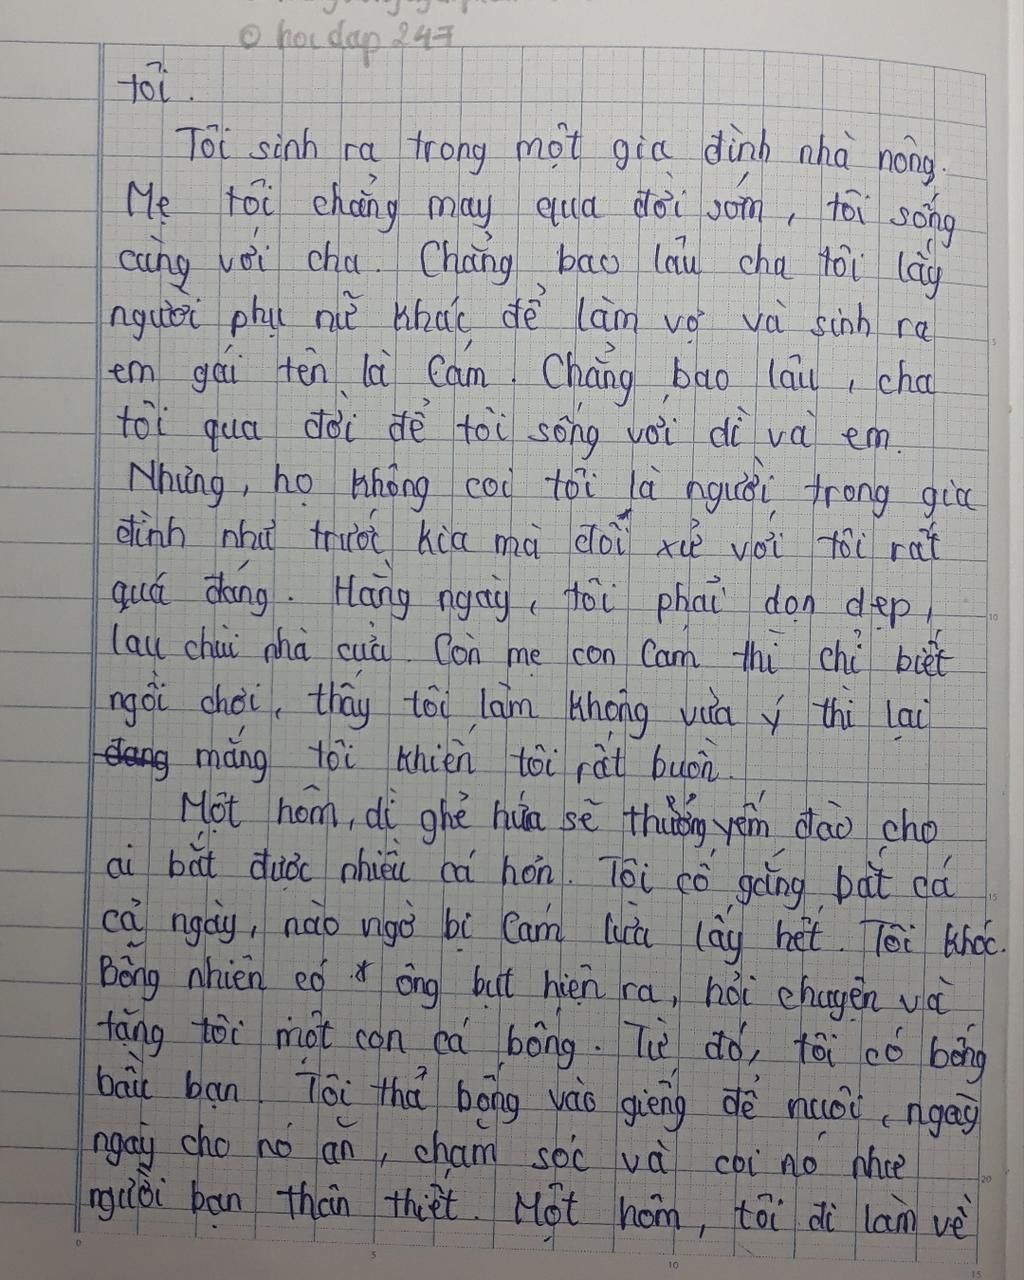 hoidap247
tôi.
Tôi sinh ra trong một gia đình nhà nông.
Mẹ tôi chẳng may qua đời sớm, tôi sống
cùng với cha. Chẳng bao lâu cha tôi lấy
người phụ nữ khác để làm vợ và sinh ra
em gái tên là Cám. Chẳng bao lâu, cha
tôi qua đời để tôi sống với dì và em.
Nhưng, họ không coi tôi là người trong gia
đình như trước kia mà đối xử với tôi rất
quá đáng. Hằng ngày, tôi phải dọn dẹp,
lau chùi nhà cửa. Còn mẹ con Cám thì chỉ biết
ngồi chơi, thấy tôi làm không vừa ý thì lại
đang mắng tôi khiến tôi rất buồn.
Một hôm, dì ghẻ hứa sẽ thưởng yếm đào cho
ai bắt được nhiều cá hơn. Tôi cố gắng bắt cá
cả ngày, nào ngờ bị Cám lừa lấy hết. Tôi khóc.
Bỗng nhiên có ông bụt hiện ra, hỏi chuyện và
tặng tôi một con cá bống. Từ đó, tôi có bống
bầu bạn. Tôi thả bống vào giếng để nuôi, ngày
ngày cho nó ăn, chăm sóc và coi nó như
người bạn thân thiết. Một hôm, tôi đi làm về
5
10
15
20
0 5 10 15